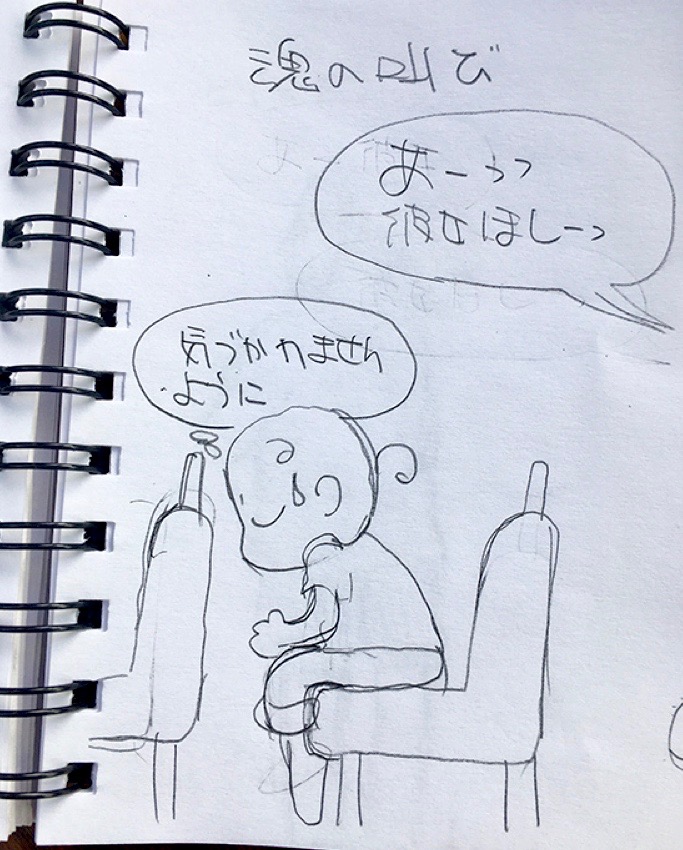 魂の叫び
あーっっ
彼女ほしーっ
気づかれません
ように